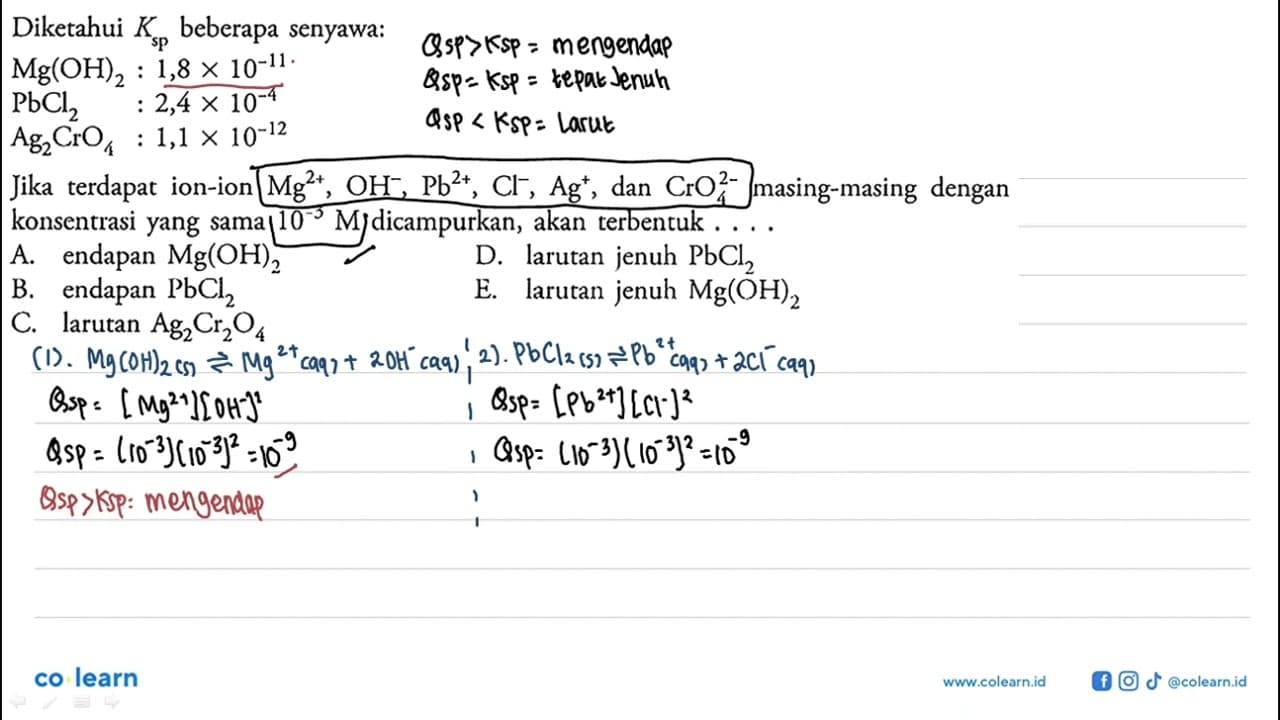 Diketahui Ksp beberapa senyawa:
Mg(OH)₂ : 1,8 × 10⁻¹¹
PbCl₂ : 2,4 × 10⁻⁴
Ag₂CrO₄ : 1,1 × 10⁻¹²
Qsp > Ksp = mengendap
Qsp = Ksp = tepat Jenuh
Qsp < Ksp = Larut
Jika terdapat ion-ion Mg²⁺, OH⁻, Pb²⁺, Cl⁻, Ag⁺, dan CrO₄²⁻ masing-masing dengan
konsentrasi yang sama 10⁻³ M dicampurkan, akan terbentuk . . . .
A. endapan Mg(OH)₂
B. endapan PbCl₂
C. larutan Ag₂Cr₂O₄
D. larutan jenuh PbCl₂
E. larutan jenuh Mg(OH)₂
(1). Mg(OH)₂(s) ⇌ Mg²⁺(aq) + 2OH⁻(aq)
Qsp = [Mg²⁺][OH⁻]²
Qsp = (10⁻³)(10⁻³)² = 10⁻⁹
Qsp > Ksp: mengendap
2). PbCl₂(s) ⇌ Pb²⁺(aq) + 2Cl⁻(aq)
Qsp = [Pb²⁺][Cl⁻]²
Qsp = (10⁻³)(10⁻³)² = 10⁻⁹
co learn
www.colearn.id
@colearn.id